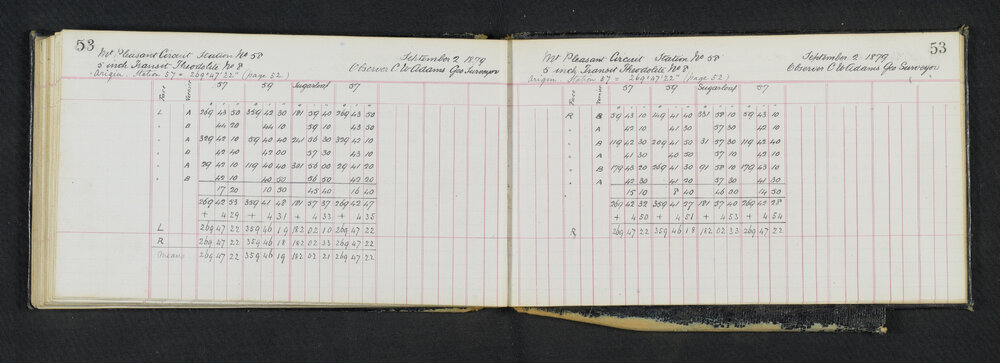 53
Mt Pleasant Circuit Station No 58 September 2 1879
5 inch Transit Theodolite No 8 Observer C W Adams Geo Surveyor
Origin Station 57 = 269° 47' 22" (page 52)
Face Vernier 57 59 Sugarloaf 57
° ' " ° ' " ° ' " ° ' "
L A 269 43 50 359 42 30 181 59 30 269 43 50
" B 44 20 44 10 59 10 43 50
" A 329 42 10 59 40 40 241 56 30 329 42 10
" B 42 40 42 00 57 30 43 10
" A 29 42 10 119 40 40 301 56 00 29 41 20
" B 42 10 40 50 56 50 42 20
17 20 10 50 45 40 16 40
269 42 53 359 41 48 181 57 37 269 42 47
+ 4 29 + 4 31 + 4 33 + 4 35
L 269 47 22 359 46 19 182 02 10 269 47 22
R 269 47 22 359 46 18 182 02 33 269 47 22
Means 269 47 22 359 46 19 182 02 21 269 47 22
53
Mt Pleasant Circuit Station No 58 September 2 1879
5 inch Transit Theodolite No 8 Observer C W Adams Geo Surveyor
Origin Station 57 = 269° 47' 22" (page 52)
Face Vernier 57 59 Sugarloaf 57
° ' " ° ' " ° ' " ° ' "
R B 59 43 10 149 41 40 331 58 10 59 43 10
" A 42 10 41 30 57 30 42 10
" B 119 42 30 209 41 50 31 57 30 119 42 40
" A 41 30 40 50 57 10 42 10
" B 179 43 20 269 41 30 91 58 10 179 43 10
" A 42 30 41 20 57 30 41 30
15 10 8 40 46 00 14 50
269 42 32 359 41 27 181 57 40 269 42 28
+ 4 50 + 4 51 + 4 53 + 4 54
R 269 47 22 359 46 18 182 02 33 269 47 22